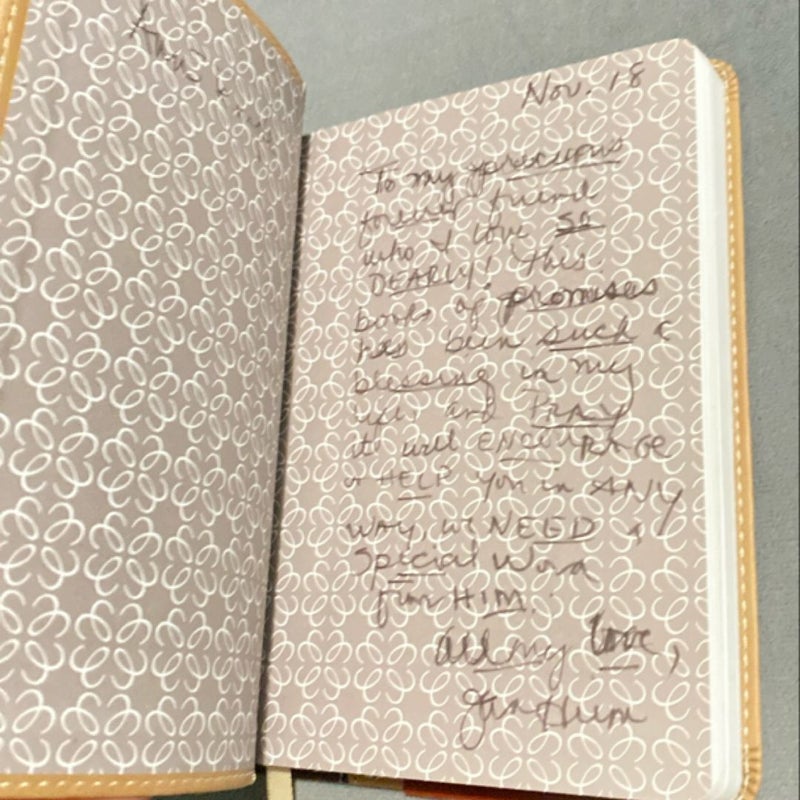 Nov. 18
To my precious
forever friend
who I love so
DEARLY! This
book of promises
has been such a
blessing in my
and PRAY
it will ENCOURAGE
or HELP you in ANY
way, we NEED a
Special Word
from HIM.
All my love,